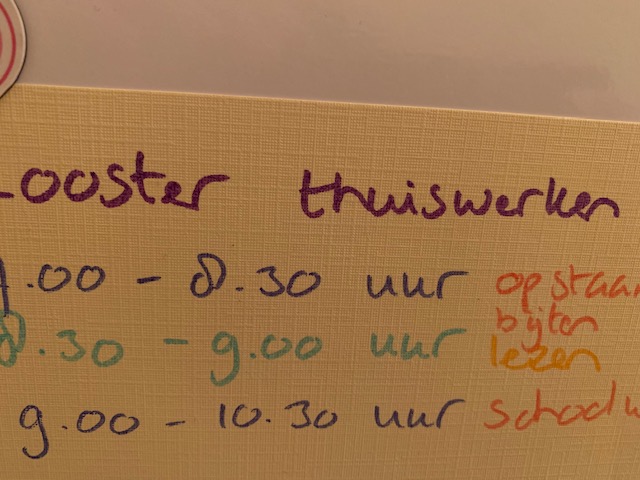 ooster thuiswerken
.00 - 8.30 uur opstaa
bijten
8.30 - 9.00 uur lezen
9.00 - 10.30 uur school